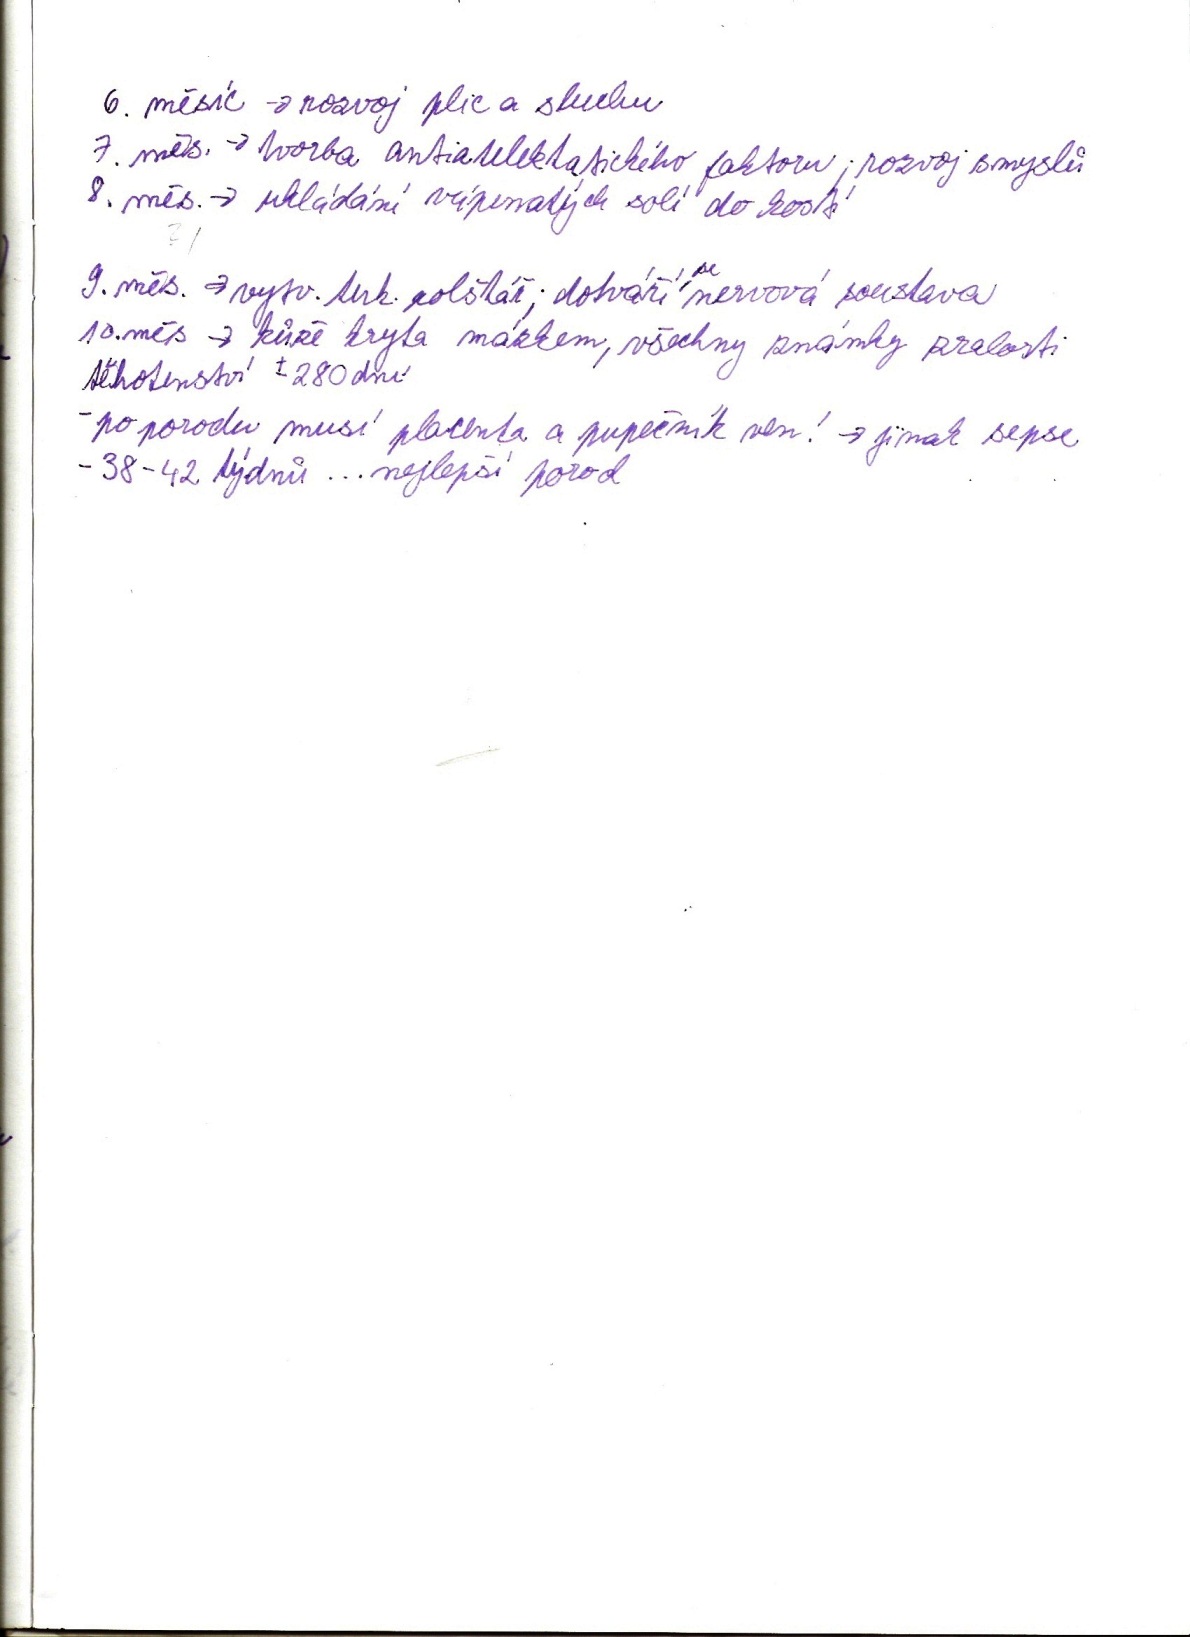 6. měsíc → rozvoj plic a sluchu
7. měs. → tvorba antiatelektatického faktoru; rozvoj smyslů
8. měs. → ukládání vápenatých solí do kostí
9. měs. → vytv. tuk. polštář; dotváří se nervová soustava
10. měs → kůže kryta mázkem, všechny známky zralosti
těhotenství ± 280 dní
- po porodu musí placenta a pupečník ven! → jinak sepse
- 38-42 týdnů ... nejlepší porod